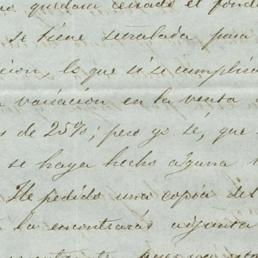 no quedara cerrado el fondo
se tiene señalada para
cion, lo que si se cumplie
variacion en la venta
s de 25%; pero yo sé, que
se haya hecho alguna
He pedido una copia del
la encontrarás adjunta